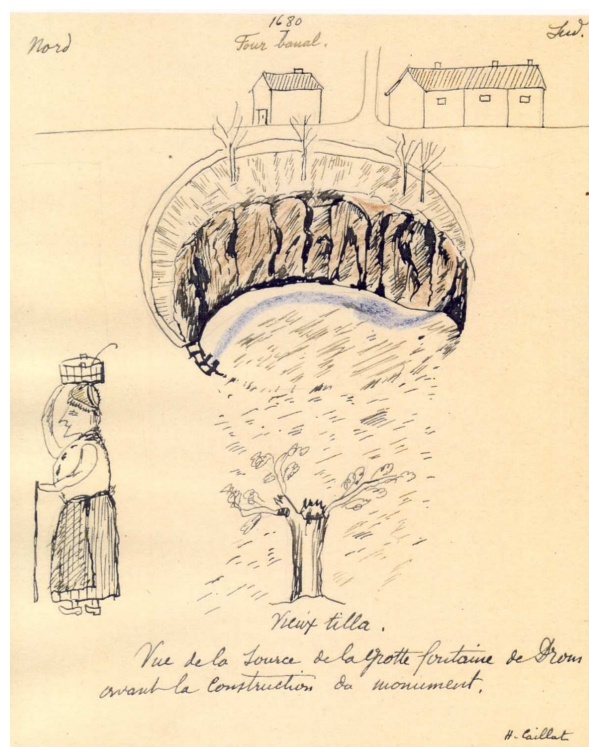 Nord
1680
Four banal.
Sud.
Vieux tilla.
Vue de la Source de la Grotte fontaine de Drom
avant la Construction du monument.
H. Caillat